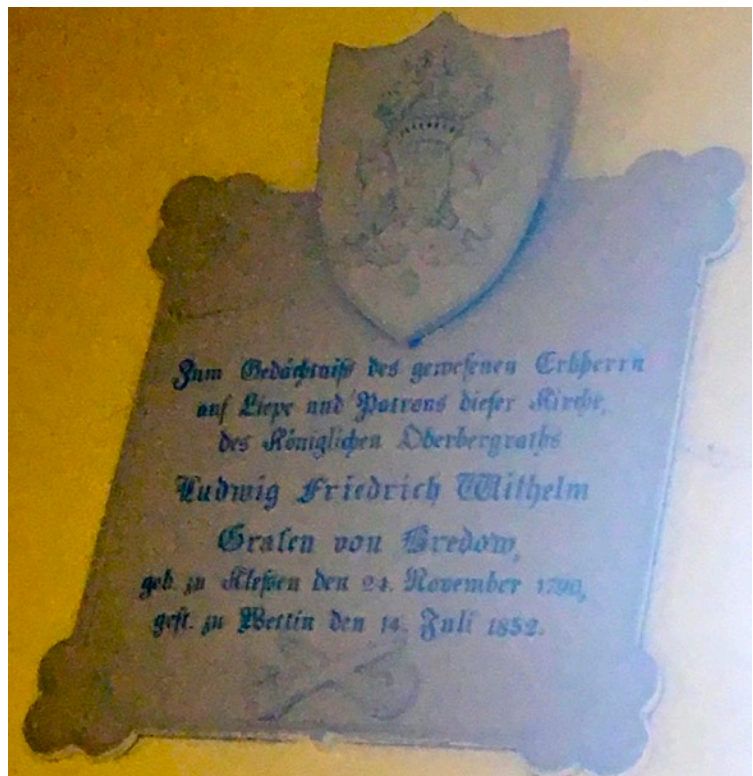 Zum Gedächtniß des gewesenen Erbherrn
auf Liepe und Patrons dieser Kirche,
des Königlichen Oberbergraths
Ludwig Friedrich Wilhelm
Grafen von Bredow,
geb. zu Klessen den 24. November 1790,
gest. zu Wettin den 14. Juli 1852.